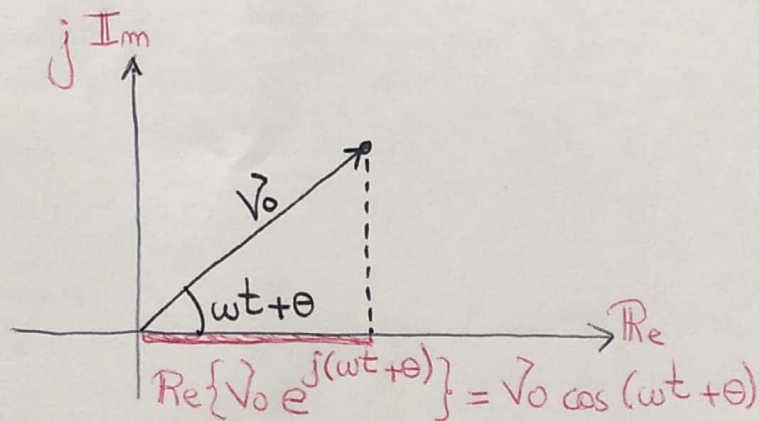 j Im
V₀
ωt+θ
Re
Re{V₀ e^j(ωt+θ)} = V₀ cos (ωt+θ)